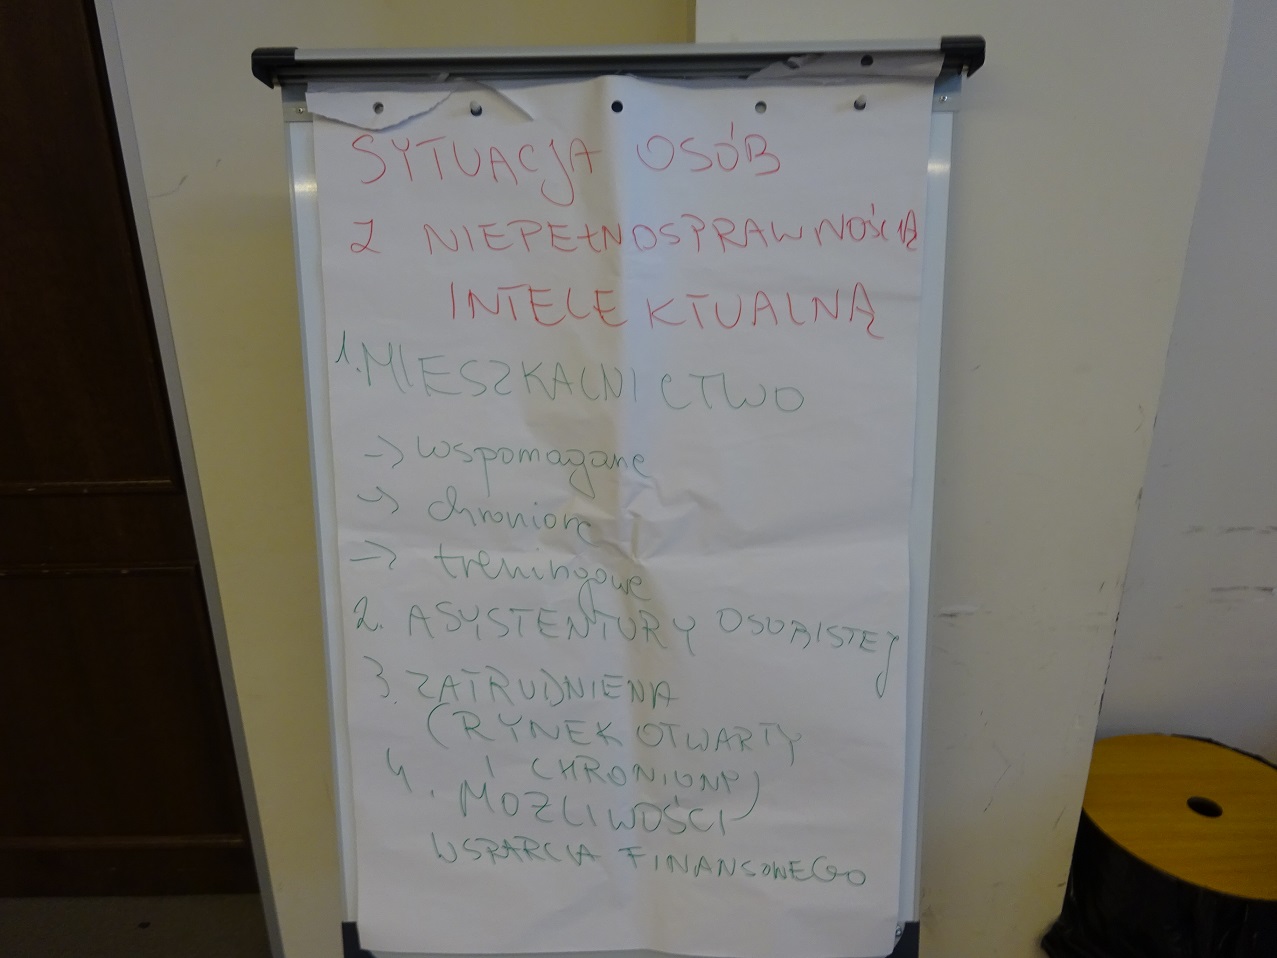 SYTUACJA OSÓB
Z NIEPEŁNOSPRAWNOŚCIĄ
INTELEKTUALNĄ
1. MIESZKALNICTWO
→ wspomagane
→ chronione
→ treningowe
2. ASYSTENTURY OSOBISTEJ
3. ZATRUDNIENA
(RYNEK OTWARTY
I CHRONIONY)
4. MOŻLIWOŚCI
WSPARCIA FINANSOWEGO